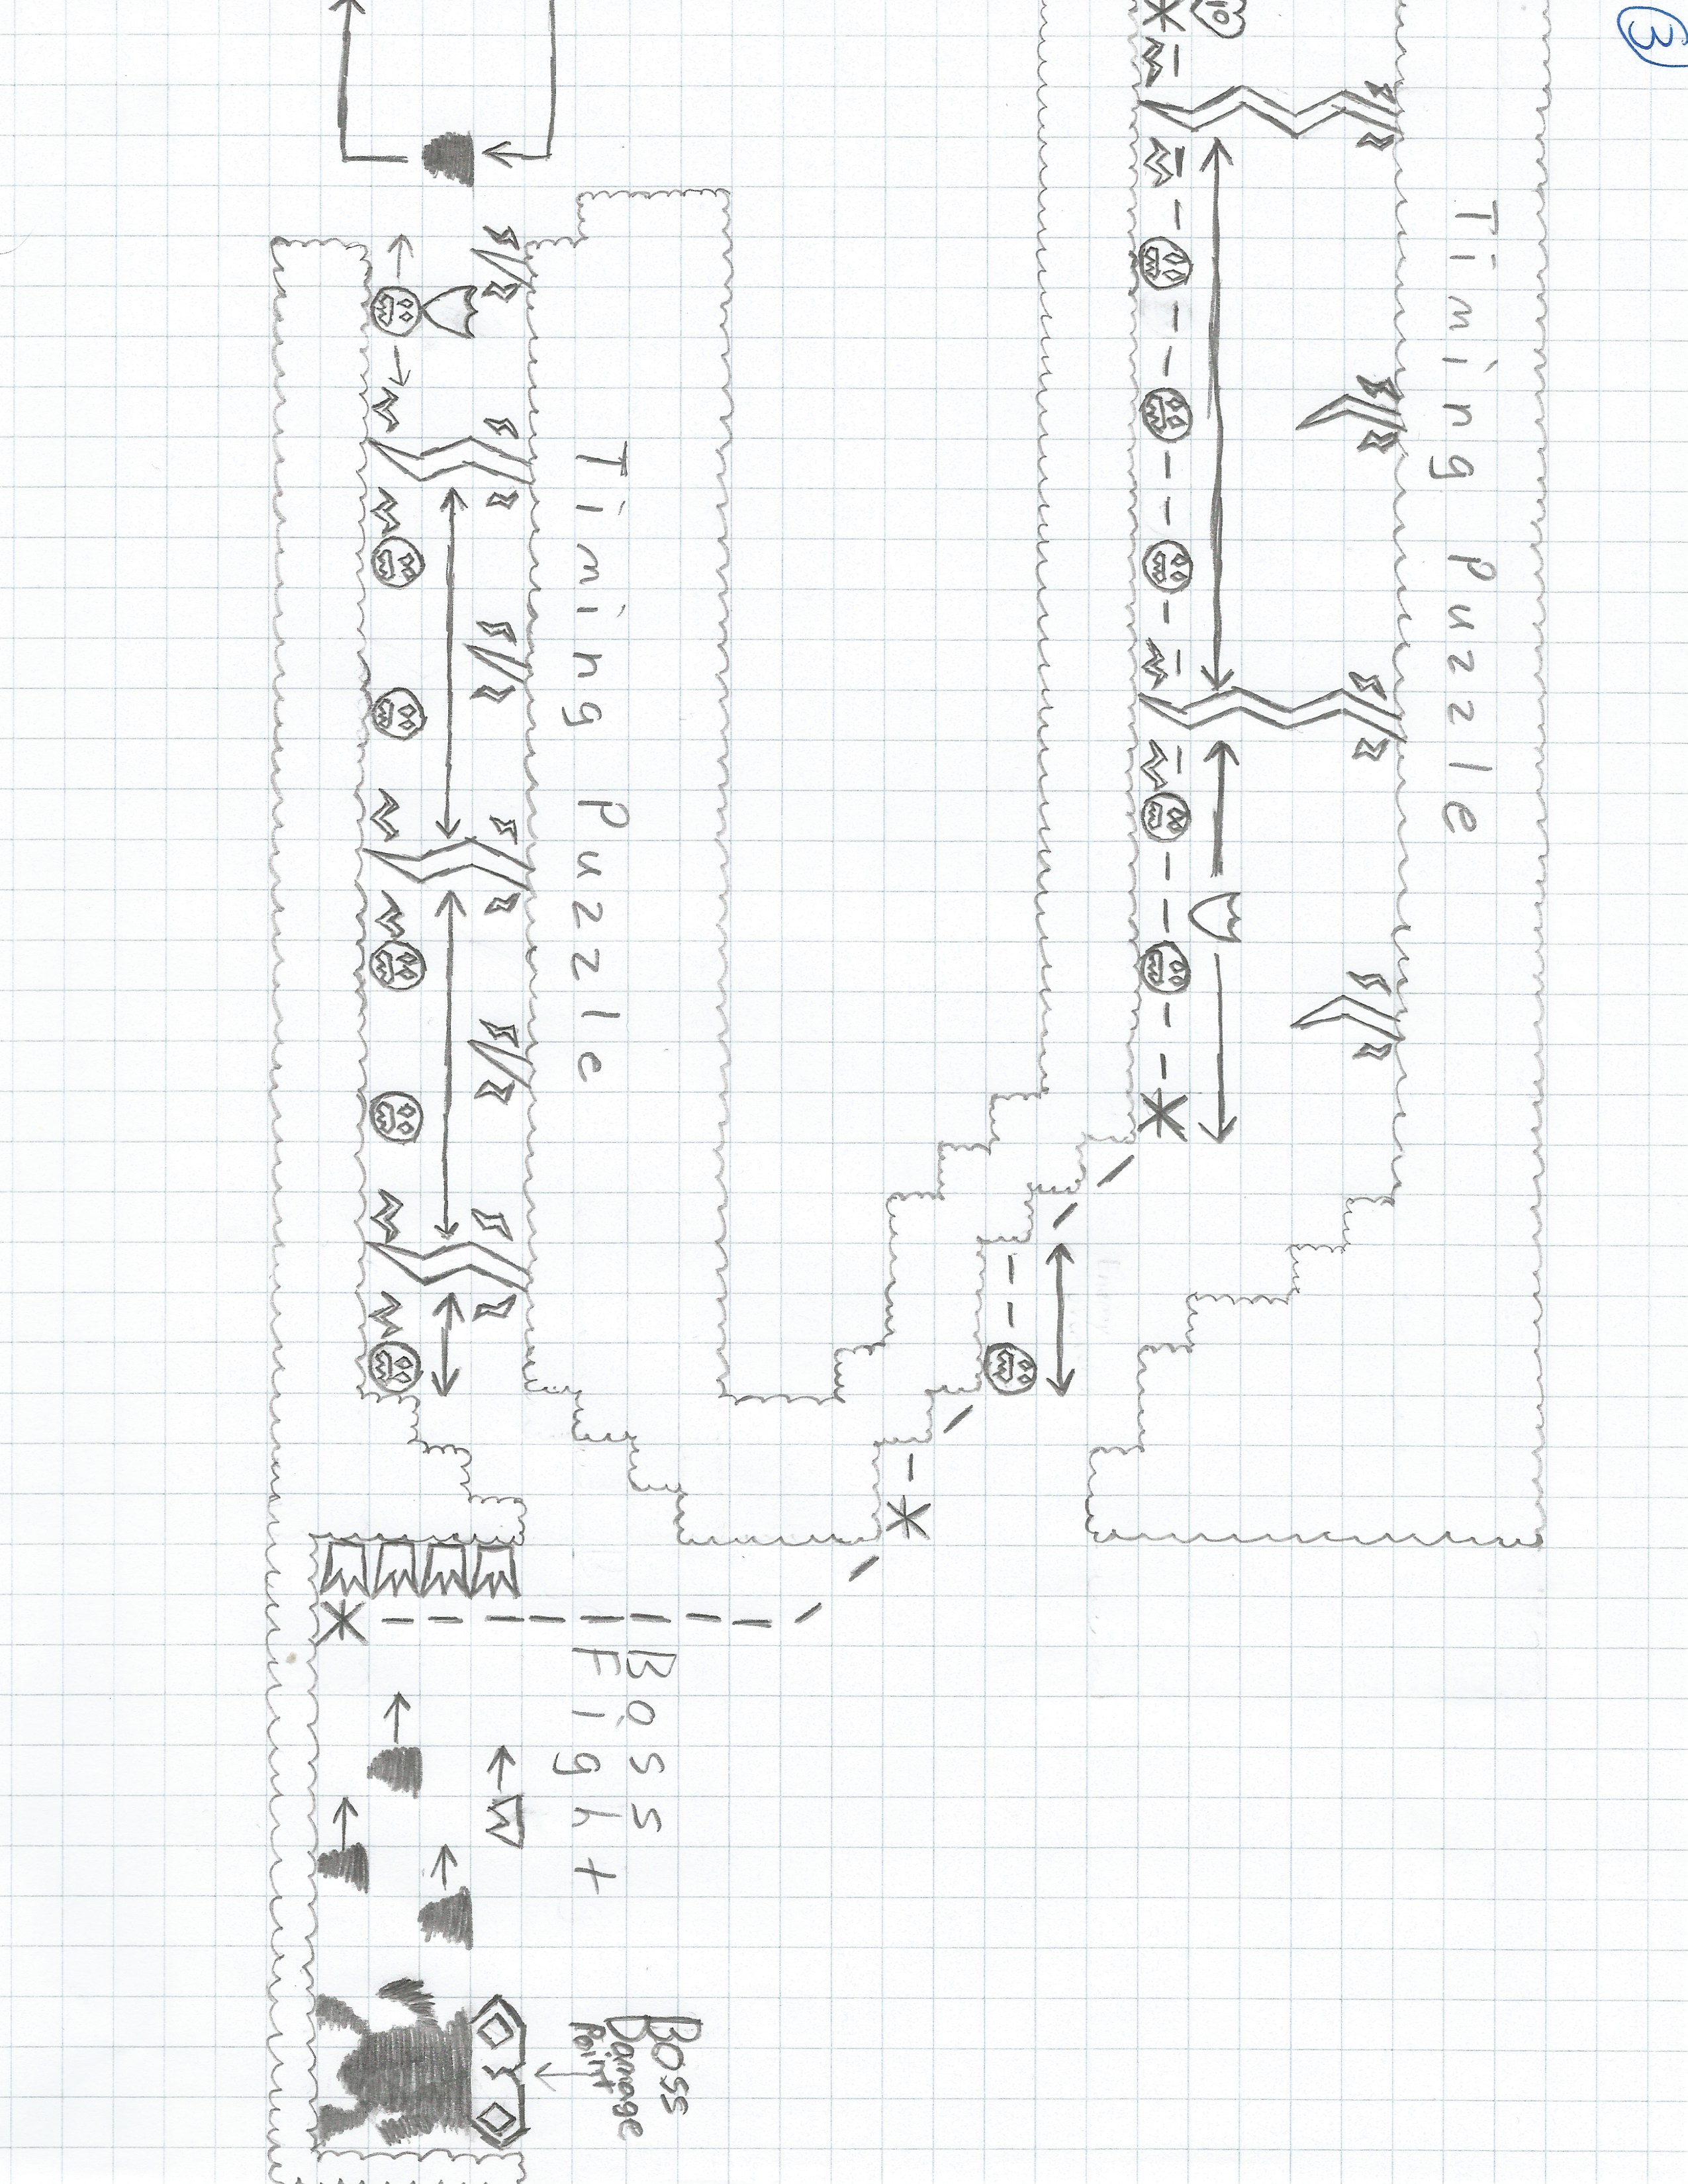 3
10
Timing Puzzle
Timing Puzzle
Boss
Fight
Boss
Damage
Point